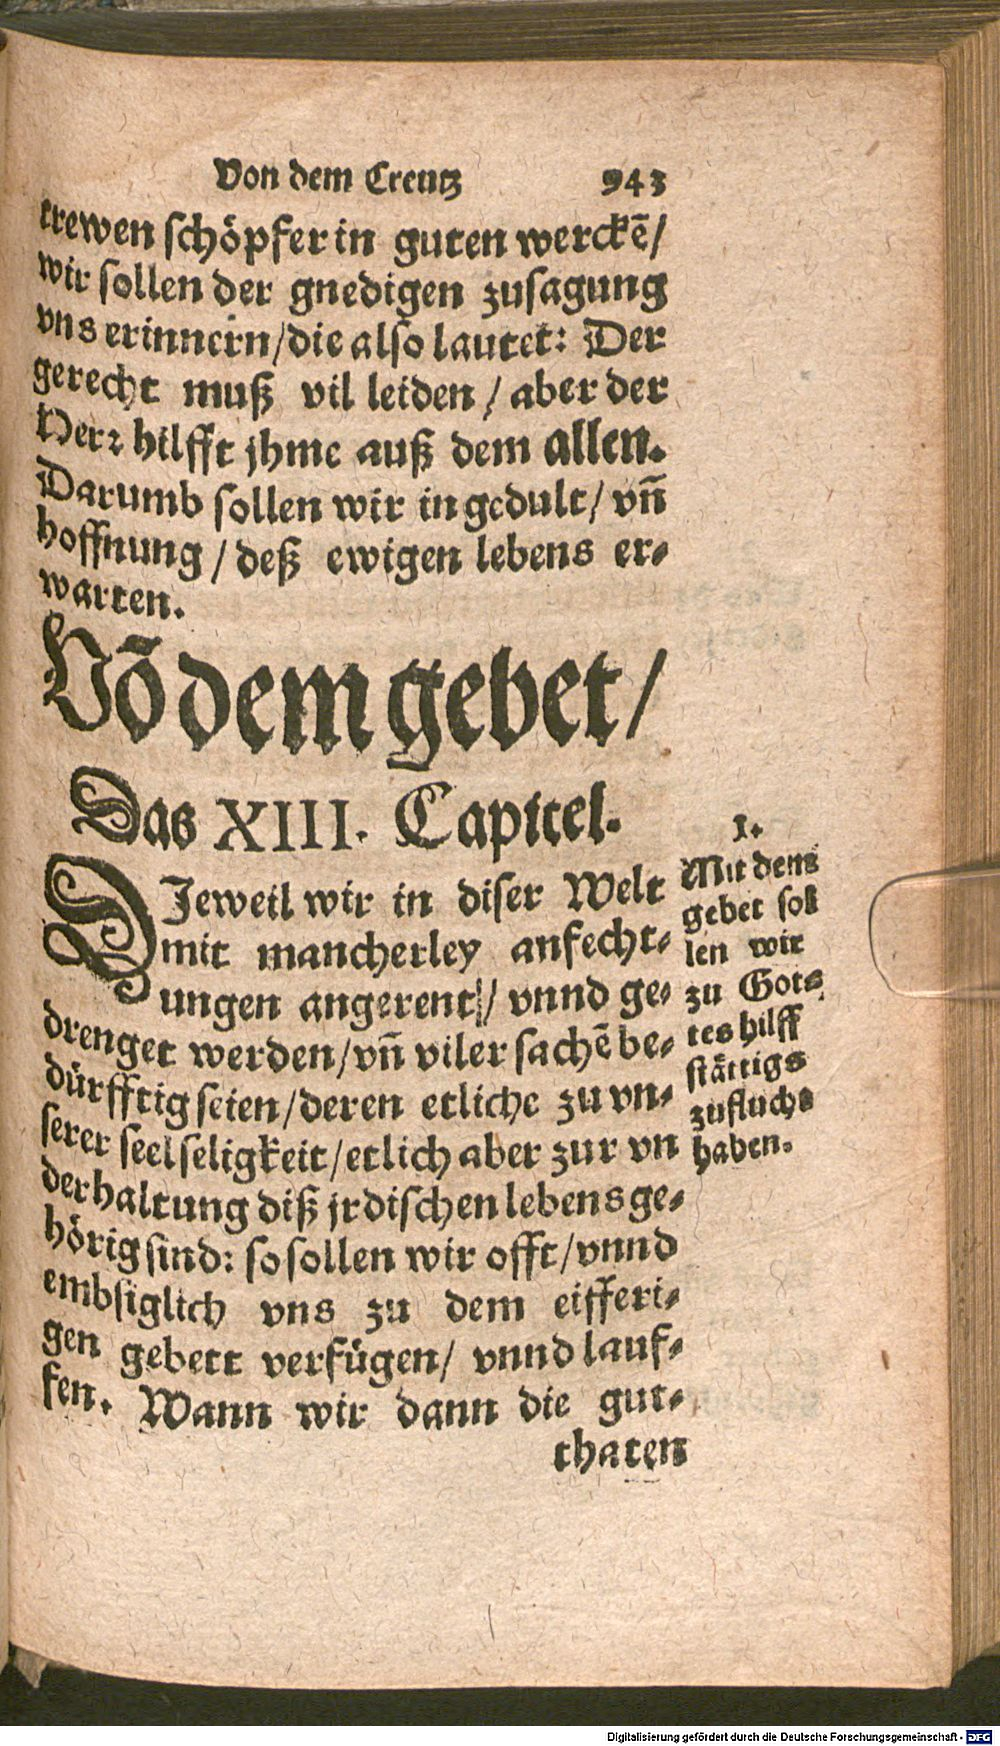 Von dem Creutz 943
trewen schöpfer in guten werckẽ/
wir sollen der gnedigen zusagung
vns erinnern/die also lautet: Der
gerecht muß vil leiden / aber der
Herꝛ hilfft jhme auß dem allen.
Darumb sollen wir in gedult/ vñ
hoffnung / deß ewigen lebens er-
warten.
Võ dem gebet/
Das XIII. Capitel.
DJeweil wir in diser Welt
mit mancherley anfecht-
ungen angerent/ vnnd ge-
drenget werden/vñ viler sachẽ be-
dürfftig seien/deren etliche zu vn-
serer seel seligkeit/etlich aber zur vn
derhaltung diß jrdischen lebens ge-
hörig sind: so sollen wir offt/vnnd
embsiglich vns zu dem eifferi-
gen gebett verfügen/ vnnd lauf-
fen. Wann wir dann die gut-
thaten
1.
Mit dem
gebet sol
len wir
zu Got-
tes hilff
stättigs
zuflucht
haben.
Digitalisierung gefördert durch die Deutsche Forschungsgemeinschaft - DFG